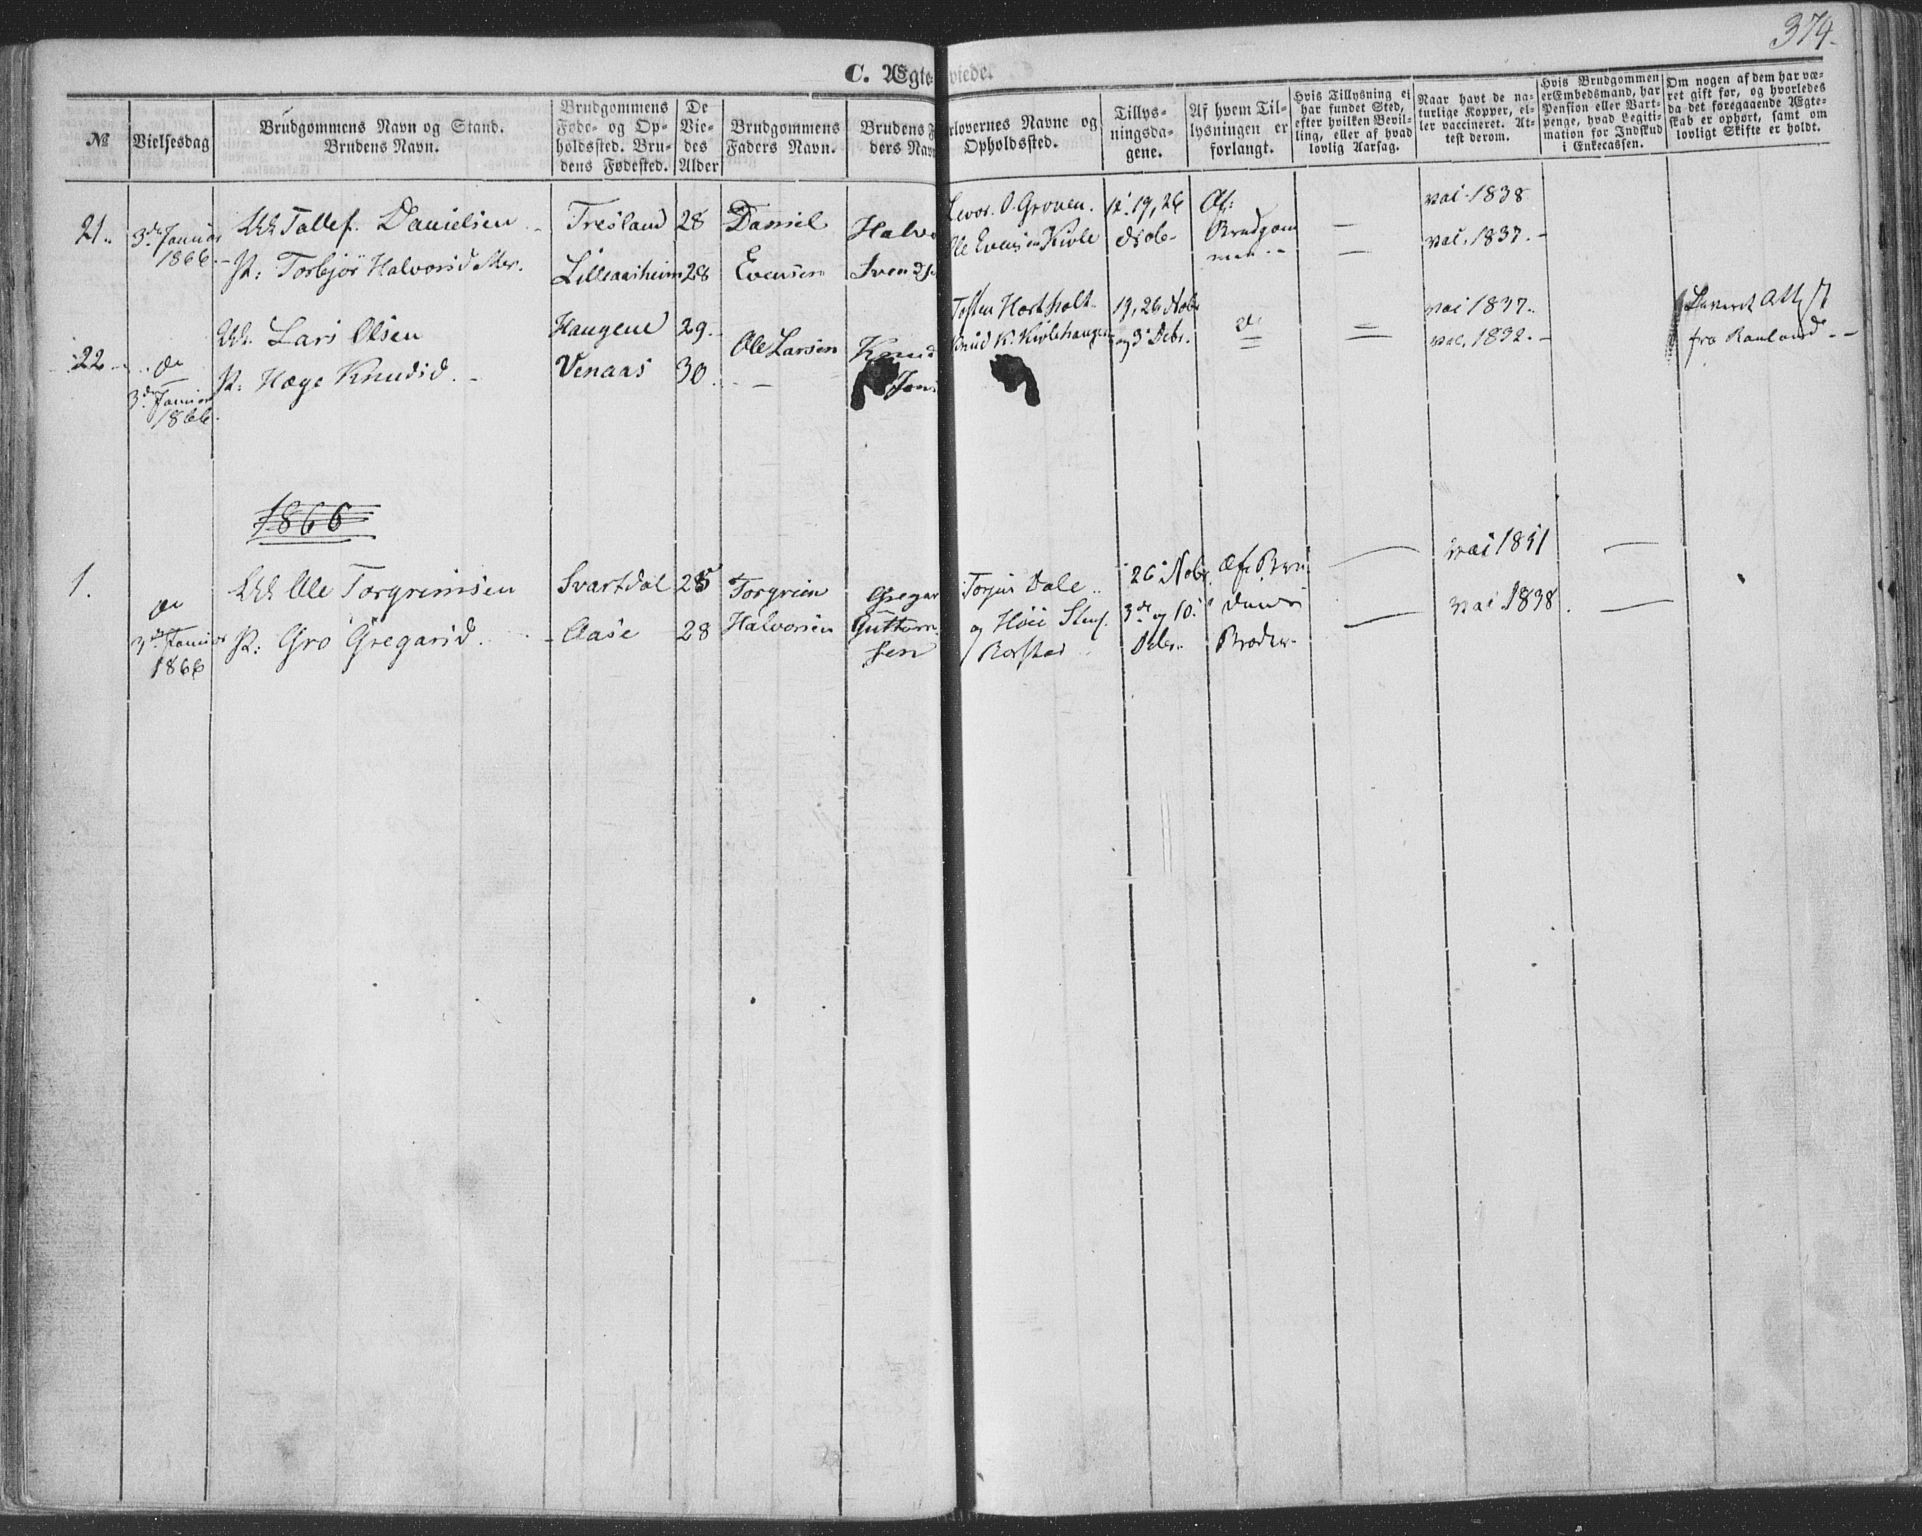 374.
C. Ægte viede.
№
Vielsesdag
Brudgommens Navn og Stand.
Brudens Navn.
Brudgommens
Føde- og Op-
holdssted. Bru-
dens Fødested.
De
Vie-
des
Alder
Brudgommens
Faders Navn.
Brudens F
ders Navn
rlovernes Navne og
Opholdssted.
Tillys-
ningsda-
gene.
Af hvem Til-
lysningen er
forlangt.
Hvis Tillysning ei
har fundet Sted,
efter hvilken Bevil-
ling, eller af hvad
lovlig Aarsag.
Naar havt de na-
turlige Kopper, el-
ler vaccineret. At-
test derom.
Hvis Brudgommen
er Embedsmand, har
Pension eller Vart-
penge, hvad Legiti-
mation for Indskud
i Enkecassen.
Om nogen af dem har væ-
ret gift før, og hvorledes
da det foregaaende Ægte-
skab er ophørt, samt om
lovligt Skifte er holdt.
21.
3de Januar
1866
Tallef. Danielsen
P: Torbjør Halvorsdatter.
Tresland
Lilleaasheim
28
28
Daniel
Evensen
Halvo
Svends
O. Groven.
Evensen Kivle
12. 19, 26
Nobr
Af
Brudgom
men.
vac. 1838
vac. 1837.
22
do
3de Januar
1866.
Lars Olsen
P: Hæge Knudsd.
Haugene
Venaas
29.
30.
Ole Larsen
Knud
Jons
19, 26 Nobr
og 3 Debr.
do
vac 1837.
vac. 1832.
Leveret Att
fra Rauland
1866
1.
do
3de Januar
1866
Ole Torgrimsen
P: Gro Gregarsd.
Svartdal
Aase
25
28
Torgrim
Halvorsen
Gregar
Guttorm
sen
Torjus Dale
og
26 Nobr
3de og 10.
Debr.
Af Bru
dens
Broder
vac 1851
vac 1838.